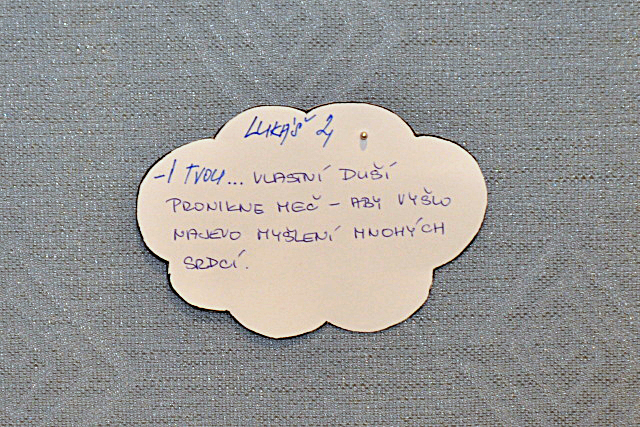 LUKÁŠ 2,
-I TVOU... VLASTNÍ DUŠÍ
PRONIKNE MEČ - ABY VYŠLO
NAJEVO MYŠLENÍ MNOHÝCH
SRDCÍ.